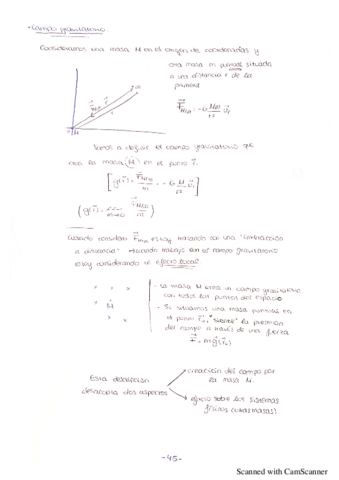 - Campo gravitatorio.
Consideramos una masa M en el origen de coordenadas y
otra masa m puntual situada
a una distancia r de la
primera
F⃗Mm = -G Mm/r² u⃗r
Vamos a definir el campo gravitatorio que
crea la masa (M) en el punto r⃗.
[g⃗(r⃗) = F⃗Mm/m = -G M/r² u⃗r]
(g⃗(r⃗) = lim m→0 F⃗Mm/m)
Cuando considero F⃗Mm estoy tratando con una "interacción
a distancia" cuando trabajo en el campo gravitatorio
estoy considerando el efecto local.
M
- La masa M crea un campo gravitatorio
con todos los puntos del espacio
- Si situamos una masa puntual en
el punto r⃗₀, "siente" la presencia
del campo a través de una fuerza
F⃗ = m g⃗(r⃗₀)
creación del campo por
la masa M.
Esta descripción
desacopla dos aspectos
efecto sobre los sistemas
físicos (otras masas)
-45-
Scanned with CamScanner